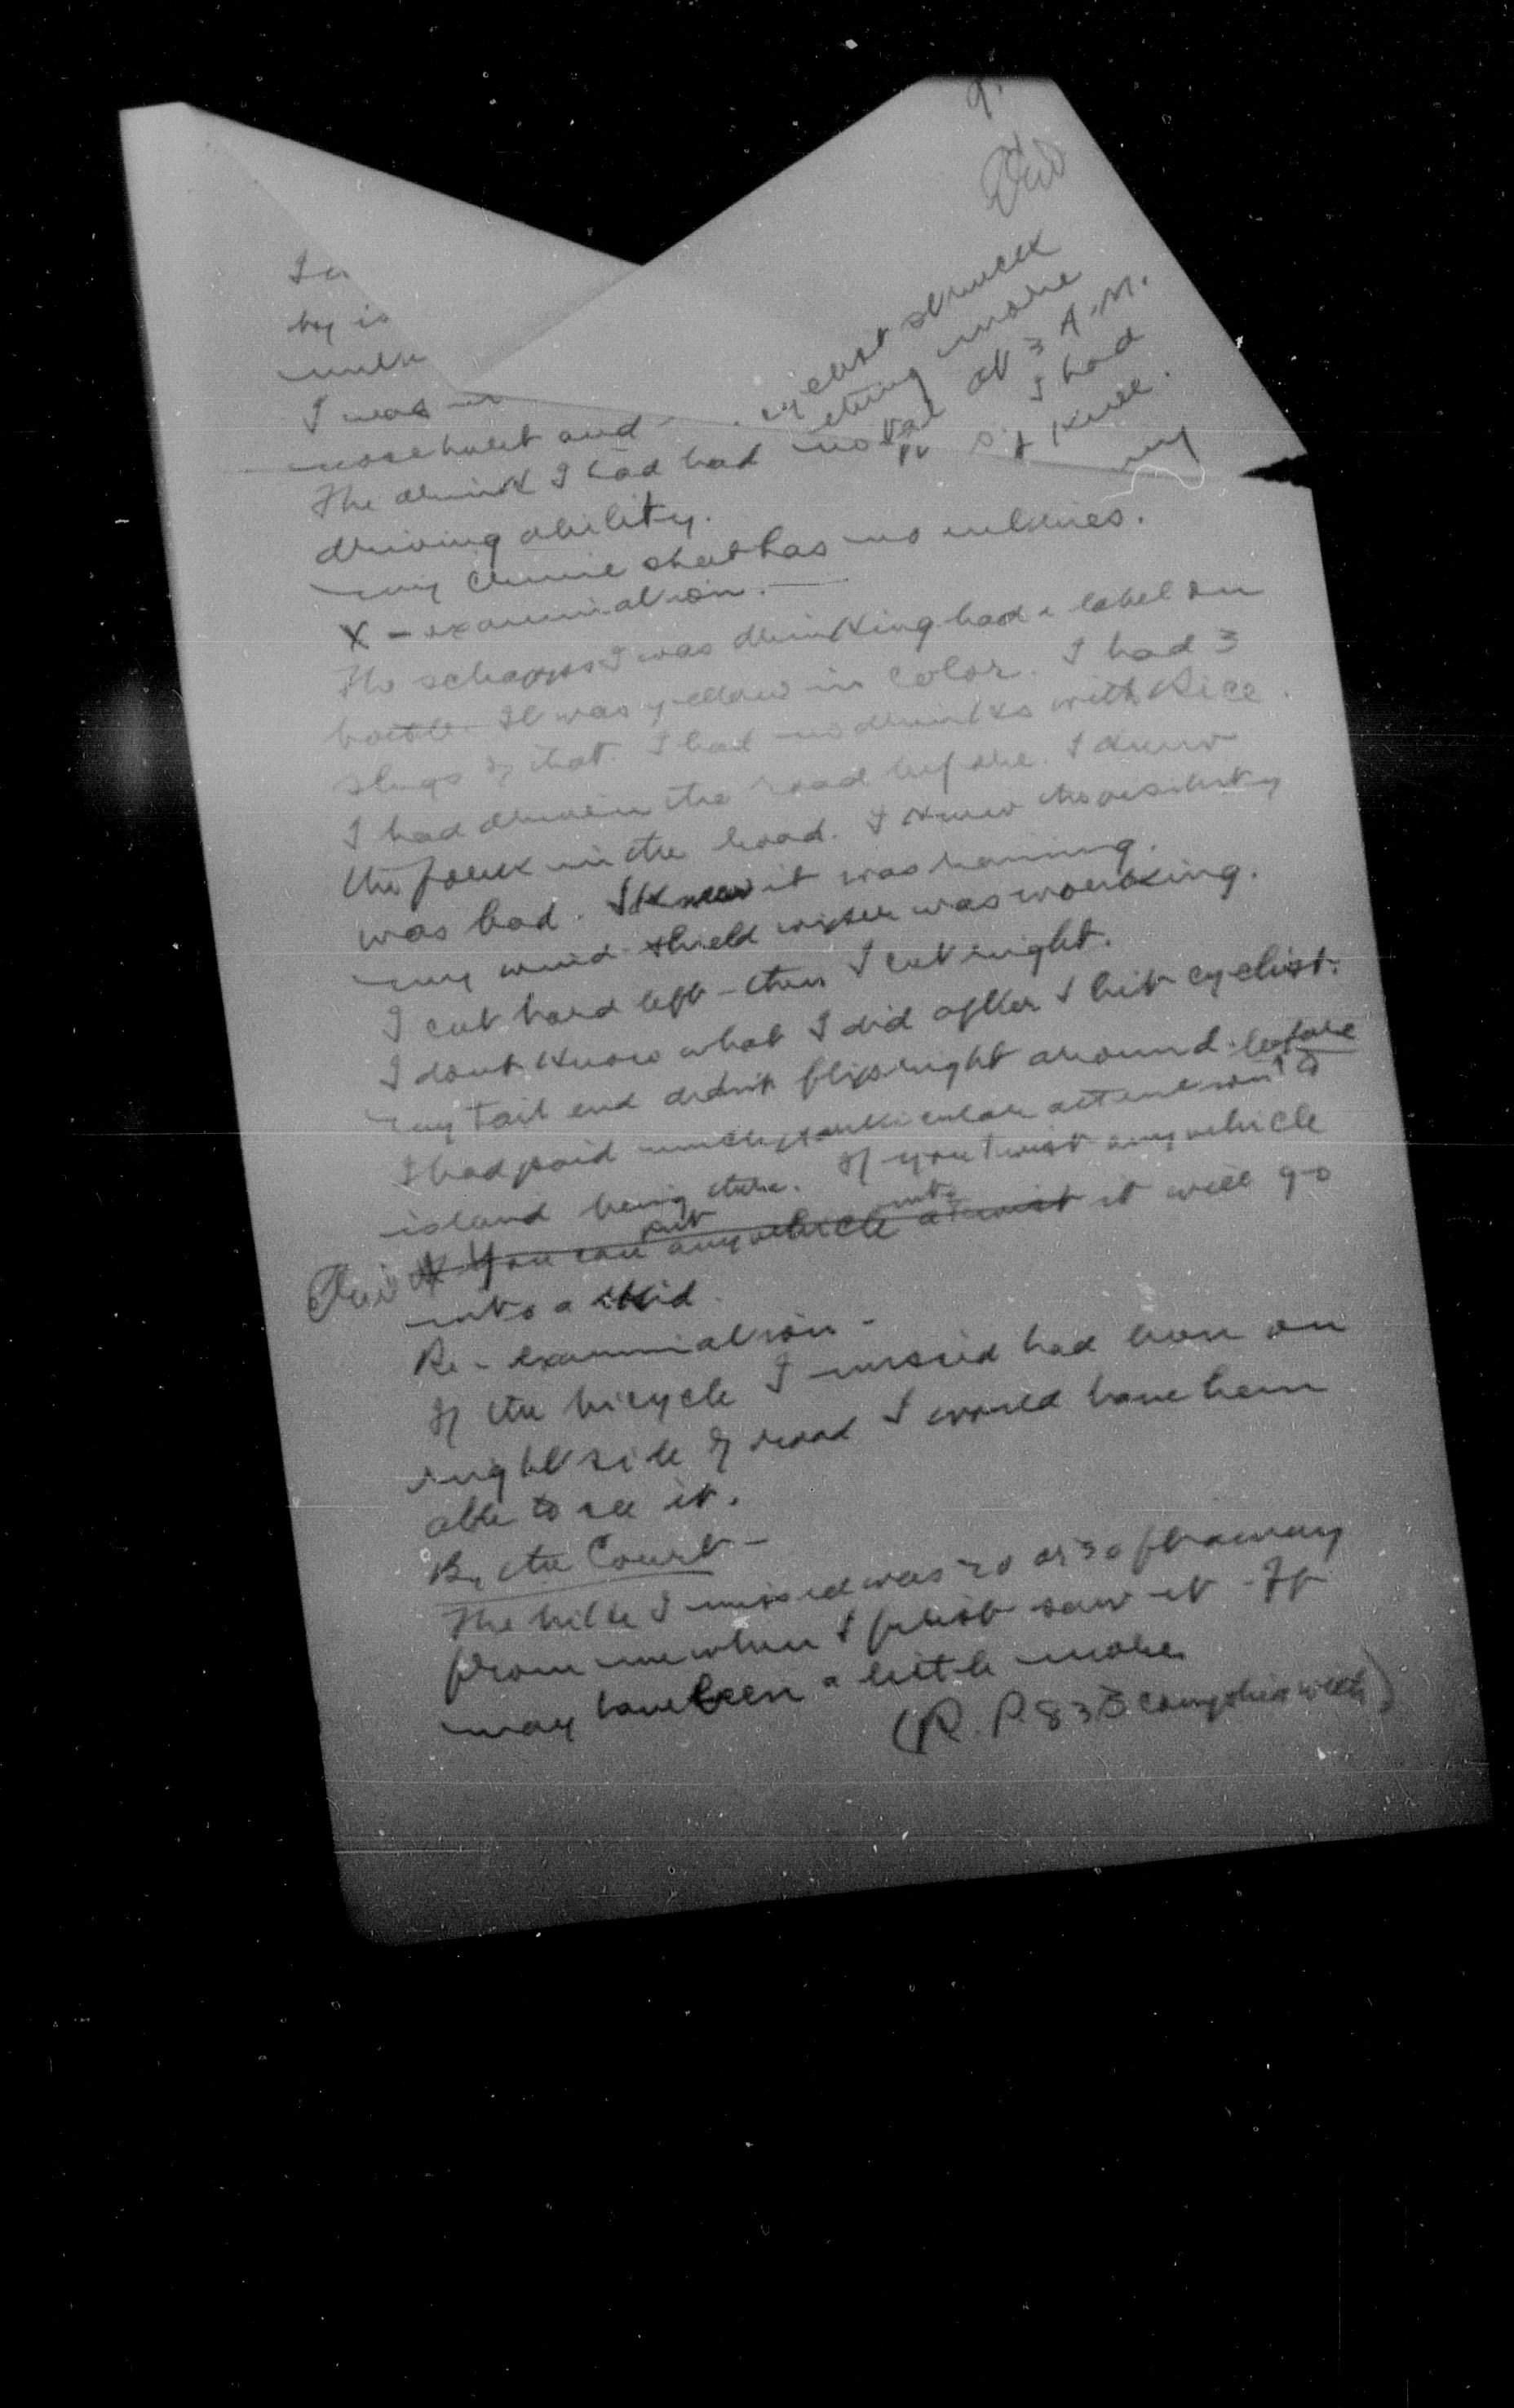 9.
I a
by is
I was
cyclist struck
thing more
at 3 A.M.
nose hurt and
I had
The drink I had had no
my
driving ability.
my crime sheet has no entries.
X - examination. -
The schapps I was drinking had a label on
bottle. It was yellow in color. I had 3
slugs of that. I had no drinks with Rice.
I had driven the road before. I knew
the fork in the road. I knew the visibility
was bad. I knew it was raining.
my wind shield wiper was working.
I cut hard left - then I cut right.
I dont know what I did after I hit cyclist.
my tail end didn't flip right around. before
I had paid much particular attention to
island being there. If you twist any vehicle
If you can put any vehicle into a twist it will go
into a skid.
Re - examination -
If the bicycle I missed had been on
right side of road I would have been
able to see it.
By the Court -
The bike I missed was 20 or 30 ft away
from me when I first saw it. It
may have been a little more.
(R. P 83 complied with)